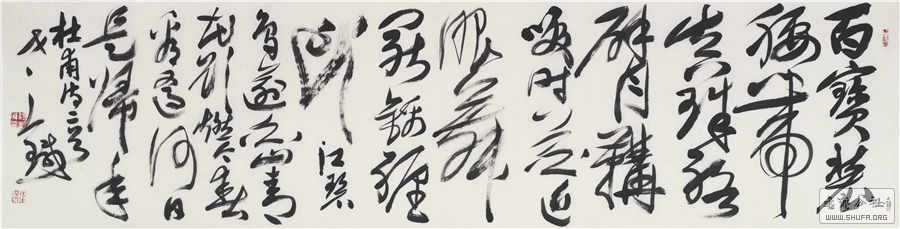 百寶裝
腰帶
真珠絡
臂韝
笑時花近
眼舞
罷錦纏
頭江碧
鳥逾白山青
花欲燃今春
看又過何日
是歸年
杜甫詩二首
书法公社
WWW.SHUFA.ORG